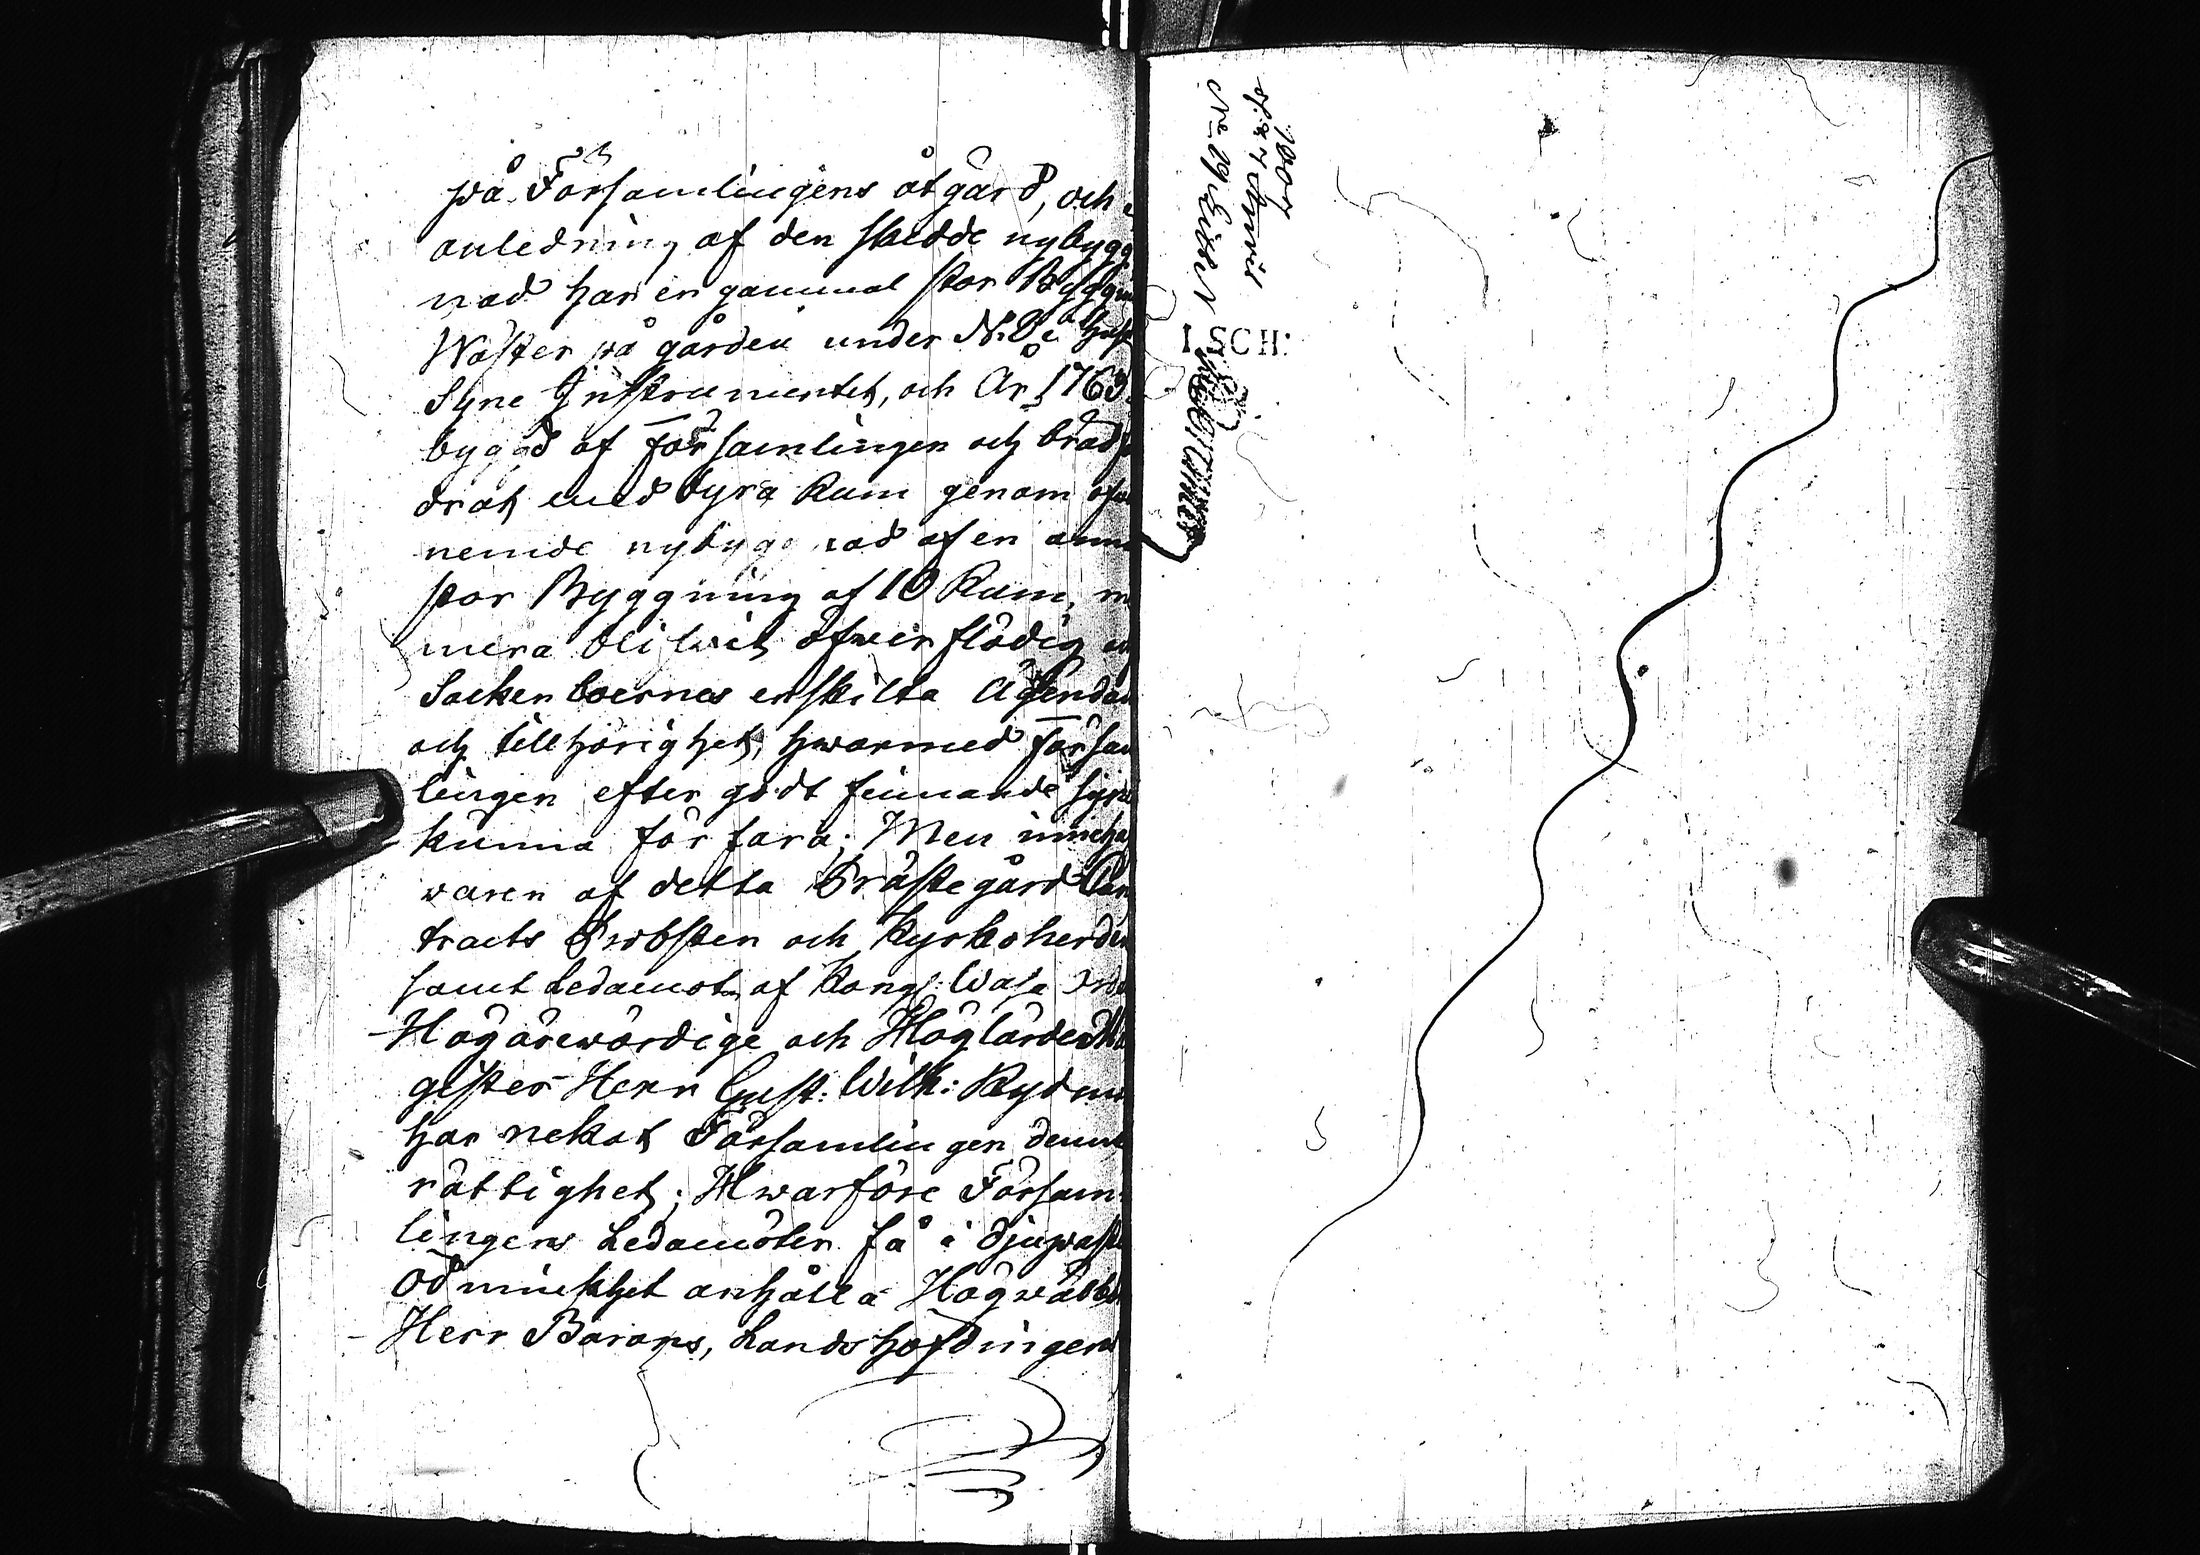 på Församlingens åtgärd, och
anledning af den skedde nybygg
nad har en gammal stor Byggn
Wäster på gården under N:o
Syne Instrumentet, och År 1763.
bygd af församlingen och bräd
drät med fyra Rum genom
nemde nybyggnad af en anna
stor Byggning af 10 Rum,
mera blifwit öfwerflödig
Sockenboernes enskilta Ägendom
och tillhörighet, hwarmed försam
lingen efter godt finnande syn
kunna förfara; Men inneha
waren af detta Prästegård Con
tracts Probsten och Kyrkoherden
samt Ledamot af Kongl: Wasa Ord
Högärewördige och Höglärde Ma
gister Herr Gust: Wilh: Rydm
har nekat Församlingen denna
rättighet; Hwarföre Försam
lingens Ledamöter få i djupaste
Ödmiukhet anhålla Högwälb
Herr Barons, Landshöfdingens
I.SCH: